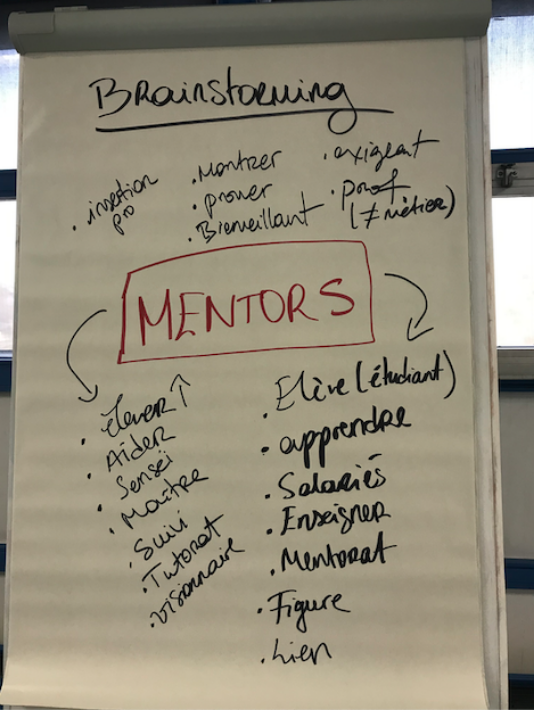 Brainstorming
. insertion
pro
. Montrer
. prouver
. Bienveillant
. exigeant
. prof
(≠ métier)
MENTORS
. élever ↑
. Aider
. Sensei
. Maître
. Suivi
. Tutorat
. visionnaire
. Elève (étudiant)
. apprendre
. Salariés
. Enseigner
. Mentorat
. Figure
. Lien